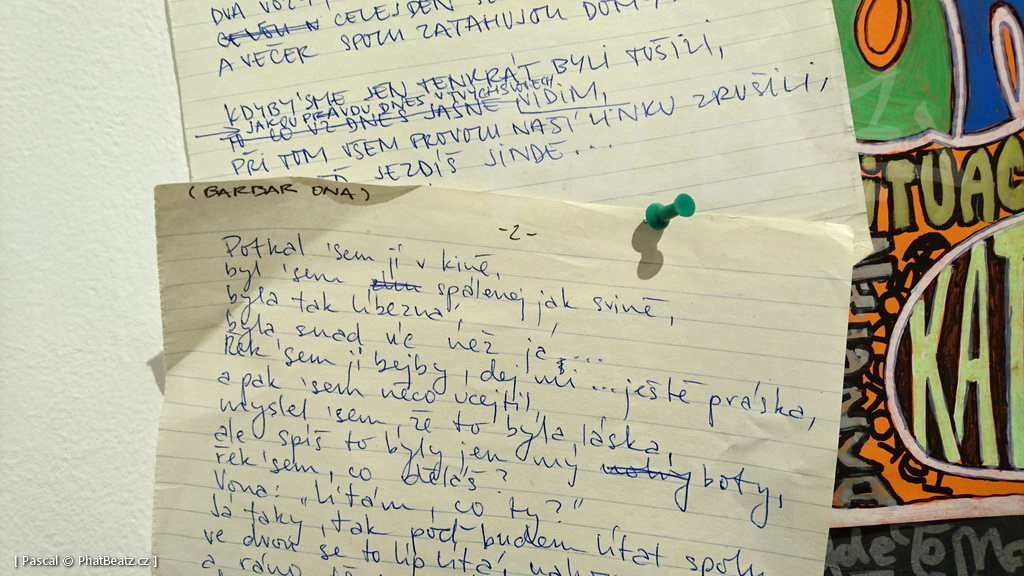 DVA VOZY
CELEJ DEN
A VEČER SPOLU ZATAHUJOU DOM
KDYBY SME JEN TENKRÁT BYLI TUŠILI,
JAKOU PRAVDU DNES V
TO CO UŽ DNES JASNĚ VIDÍM,
PŘI TOM VŠEM PROVOZU NAŠÍ LINKU ZRUŠILI,
JEZDÍŠ JINDE...
(BARBAR ONA)
-2-
Potkal 'sem jí v kině,
byl 'sem spálenej jak svině,
byla tak líbezná,
byla snad víc než já,...
Řek 'sem jí bejby, dej mi ... ještě práska,
a pak 'sem něco ucejtil,
myslel 'sem, že to byla láska,
ale spíš to byly jen mý boty,
řek 'sem, co děláš?
Vona: "lítám, co ty?"
Já taky, tak pojď budem lítat spolu
ve dvou se to líp lítá,
a ráno
ITUAC
KAT
[ Pascal © PhatBeatz.cz ]